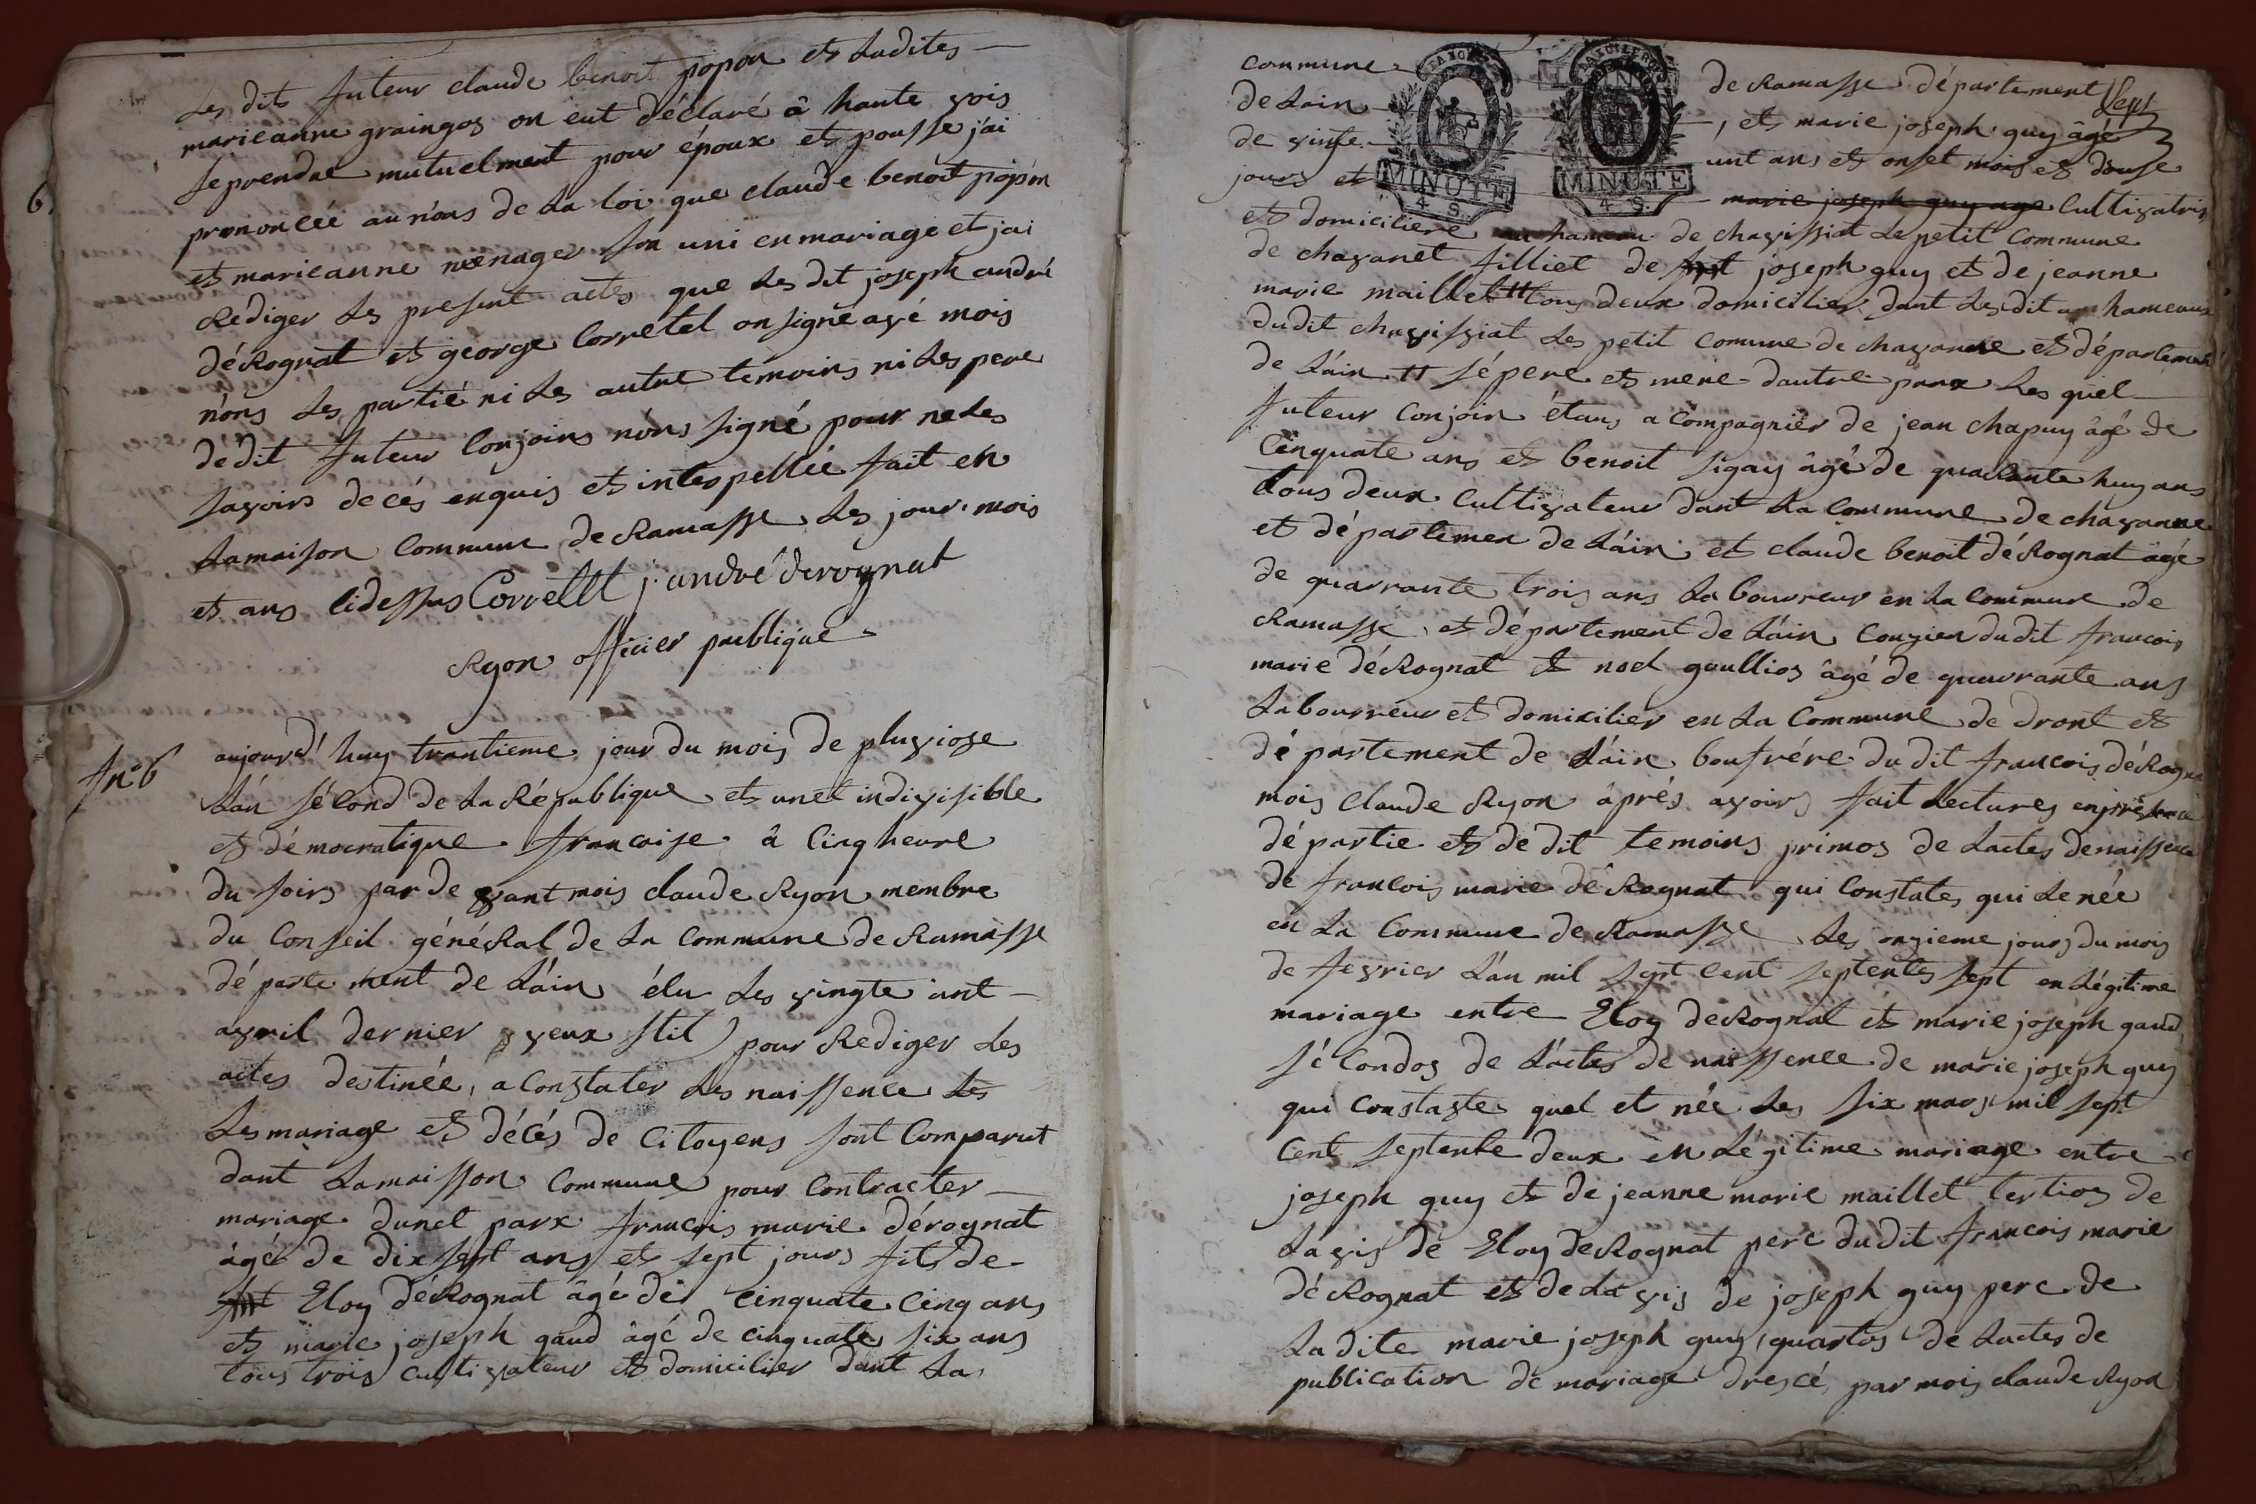 Les dits futeur claude benoit popon et Ladites
marieanne graingos on eut déclaré â haute vois
se prendae mutuelment pour époux et pousse j'ai
prononcée au nóns de La loi que claude benoit popon
et marieanne menager son uni en mariage et jai
Rediger Les present actes que Les dit joseph andré
déRognat et george Corretel on signé avé mois
nóns Les partié ni Les autre temoins ni Les pere
dédit futeur Conjoins nóns signé pour ne Les
savoirs de cés enquis et interpellée fait en
Lamaison Commune de Ramasse Les jour mois
et ans Cidessus Corretel j. andré derognat
Ryon officier publique
6
fn° 6
aujourd'huy trantieme jour du mois de pluviose
Lán sécond de La République et unet indivisible
et démocratique francaise â Cinq heure
du soirs par de vant mois claude Ryon membre
du Conseil généRal de La Commune de Ramasse
département de Láin élu Les vingte ant
avril dernier veux stil) pour Rediger Les
actes destinée, a Constater Les naissence Les
Les mariage et décés de Citoyens sont Comparut
dant Lamaisson Commune pour Contracter
mariage dunet parx francois marie dérognat
âgé de dix sept ans et sept jours fils de
Eloy déRognat âgé de cinquate Cinq ans
et marie joseph gaud âgé de cinquate six ans
tous trois cultivateur et domicilier dant La
Sept
commune de Ramasse département
de Lain, et marie joseph guy âgé
de vinte unt ans et onset mois et douse
jours et marie joseph guy age Cultivatris
et domiciliere au hameau de chavissiat Le petit Commune
de chavanet filliet de joseph guy et de jeanne
marie maillet tt tous deux domicilier dant Les dit hameaux
dudit chavissiat Les petit Comune de chavanne et département
de Láin tt sépere et mere dautre parx Les quel
futeur Conjoin étans a Compagnier de jean chapuy âgé de
Cinquate ans et benoit sigay âgé de quarante huy ans
tous deux Cultivateur dant La Commune de chavanne
et départemen de Láin et claude benoit déRognat âgé
de quarrante trois ans La bourreur en La Commune de
Ramasse, et département de Láin Couzien dudit francois
marie déRognat et noel goullios âgé de quarrante ans
Labourreur et domicilier en La Commune de dront et
département de Láin boufrére du dit francois déRogna
mois Claude Ryon áprés avoirs fait Lectures en présence
départie et dedit temoins primos de Lactes denaissence
de francois marie déRognat qui Constates qui Le née
en La Commune de Ramasse Les onzieme jours du mois
de fevrier Lán mil sept cent septentes sept en Légitime
mariage entre Eloy deRognat et marie joseph gaud
sécondos de Láctes de naissence de marie joseph guy
qui Constastes quel et née Les six mars mil sept
Cent septente deux en Légitime mariage entre
joseph guy et de jeanne marie maillet tertios de
Lavis de Eloy deRognat pere dudit francois marie
déRognat et deLa vis de joseph guy pere de
Ladite marie joseph guy quartos de Lactes de
publication de mariage drescé par mois claude Ryon
MINUTE
4 S.
MINUTE
4 S.